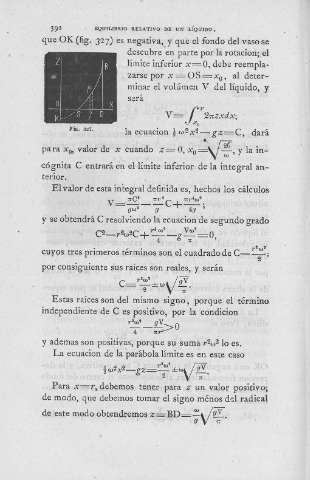 392 EQUILIBRIO RELATIVO DE UN LÍQUIDO.
que OK (fig. 327) es negativa, y que el fondo del vaso se
descubre en parte por la rotacion; el
límite inferior x=0, debe reemplazarse
por x=OS=x₀, al determinar
el volúmen V del líquido, y
será
V=∫ 2πzxdx;
Fig. 327.
la ecuacion ½ω²x²—gz=C, dará
para x₀, valor de x cuando z=0, x₀=√, y la incógnita
C entrará en el límite inferior de la integral anterior.
El valor de esta integral definida es, hechos los cálculos
y se obtendrá C resolviendo la ecuacion de segundo grado
C²—r²ω²C+r⁴ω⁴/4—gVω²/π=0,
cuyos tres primeros términos son el cuadrado de C—r²ω²/2;
por consiguiente sus raices son reales, y serán
C=r²ω²/2±ω√gV/π
Estas raices son del mismo signo, porque el término
independiente de C es positivo, por la condicion
y ademas son positivas, porque su suma r²ω² lo es.
La ecuacion de la parábola límite es en este caso
½ω²x²—gz=r²ω²/2±ω√gV/π.
Para x=r, debemos tener para z un valor positivo;
de modo, que debemos tomar el signo ménos del radical
de este modo obtendremos z=BD=ω/g√gV/π.